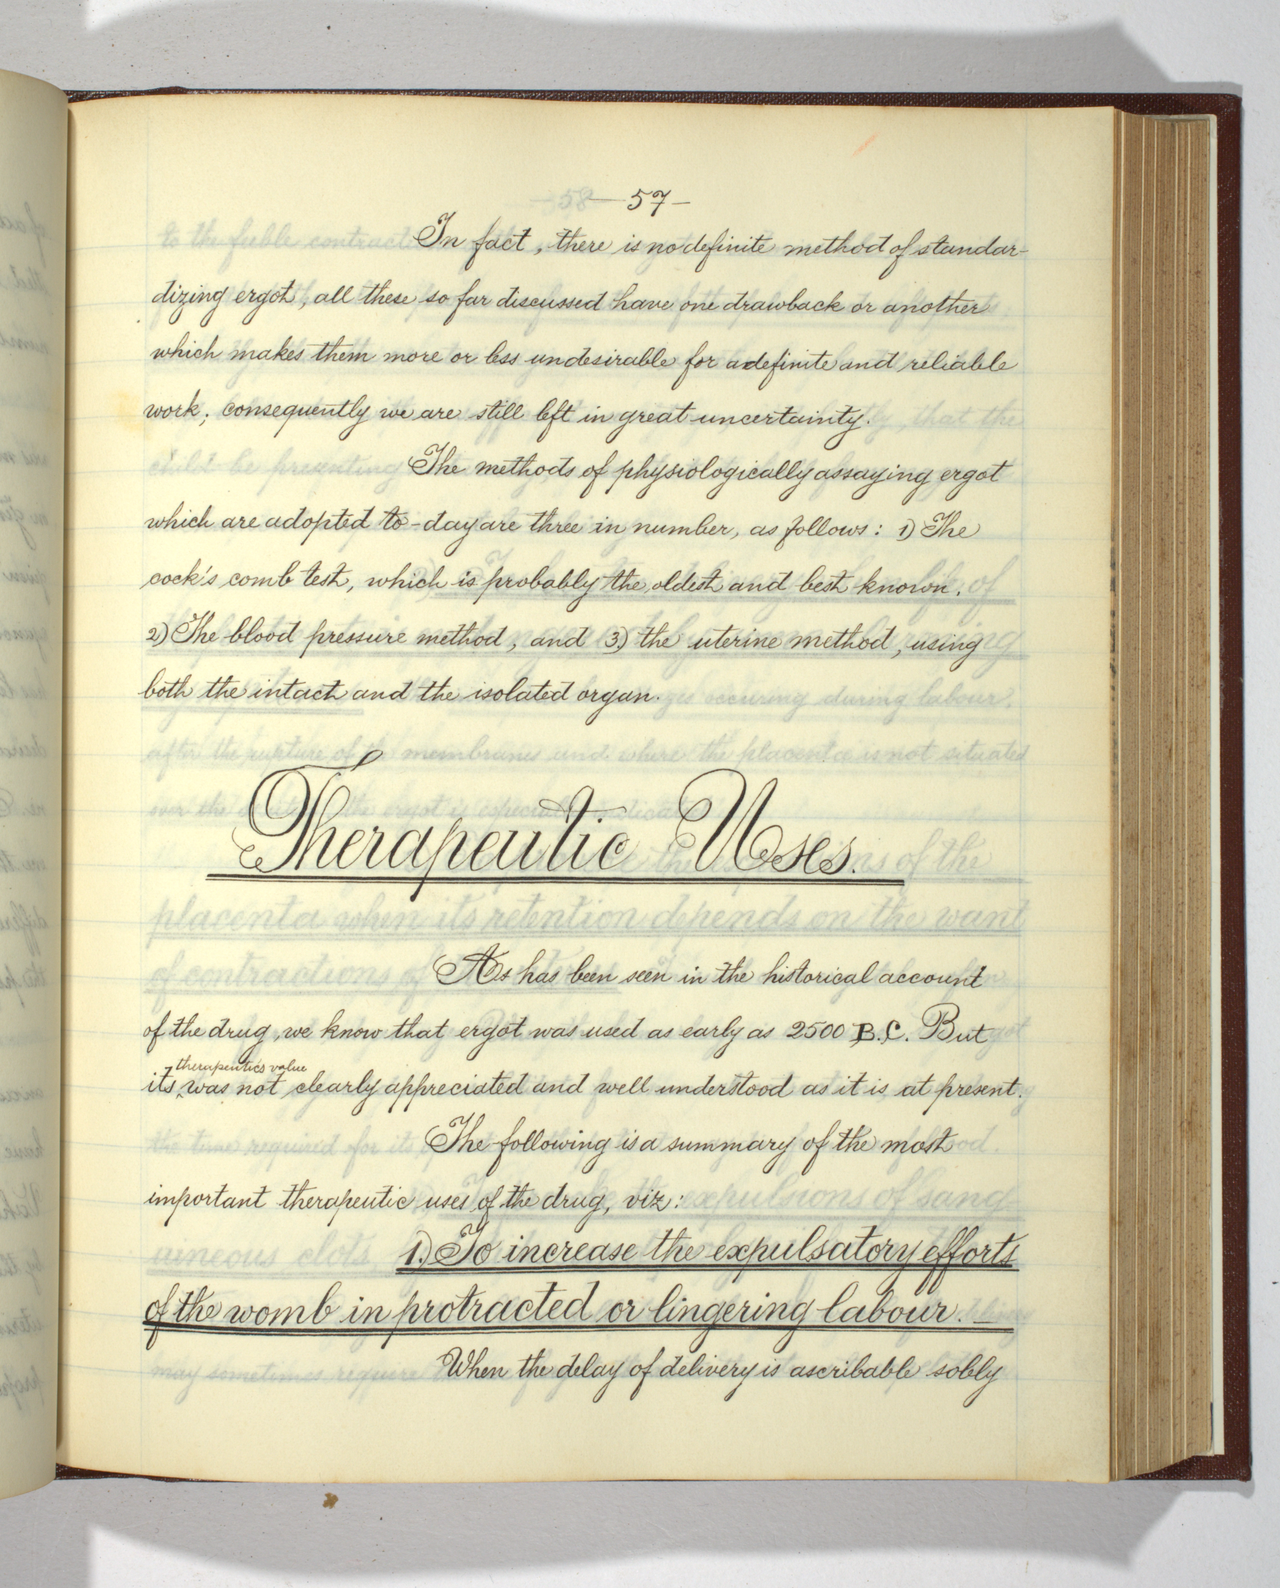 - 57 -
In fact, there is no definite method of standar-
dizing ergot, all these so far discussed have one drawback or another
which makes them more or less undesirable for a definite and reliable
work; consequently we are still left in great uncertainty.
The methods of physiologically assaying ergot
which are adopted to-day are three in number, as follows: 1) The
cock's comb test, which is probably the oldest and best known.
2) The blood pressure method, and 3.) the uterine method, using
both the intact and the isolated organ.
Therapeutic Uses.
As has been seen in the historical account
of the drug, we know that ergot was used as early as 2500 B.C. But
therapeutics value
its ‸ was not clearly appreciated and well understood as it is at present.
The following is a summary of the most
important therapeutic uses of the drug, viz:
1.) To increase the expulsatory efforts
of the womb in protracted or lingering labour.
When the delay of delivery is ascribable solely